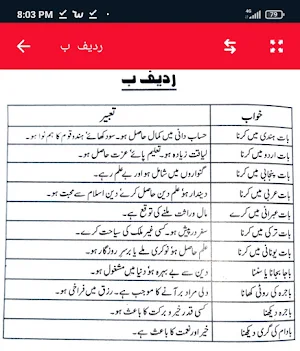 8:03 PM
4G
79
ردیف ب
ردیف ب
خواب
تعبیر
بات ہندی میں کرنا
حساب دانی میں کمال حاصل ہو۔ سود کھائے ہندو قوم کا ہم نوا ہو۔
بات اردو میں کرنا
لیاقت زیادہ ہو۔ تعلیم پائے عزت حاصل ہو۔
بات پنجابی میں کرنا
گنواروں میں شامل ہو اور بے علم رہے۔
بات عربی میں کرنا
دیندار ہو علم دین حاصل کرے دین اسلام سے محبت ہو۔
بات عبرانی میں کرے
مال وراثت ملنے کی توقع ہے۔
بات ترکی میں کرنا
سفر درپیش ہو۔ کسی غیر ملک کی سیاحت کرے۔
بات یونانی میں کرنا
علم حاصل ہو نوکری ملے یا برسر روزگار ہو۔
باجا بجانا یا سننا
دین سے بے بہرہ ہو دنیا میں مشغول ہو۔
باجرہ کی روٹی کھانا
دلی مراد بر آنے کا موجب ہے۔ رزق میں فراخی ہو۔
باجرہ دیکھنا
کسی قدر خیر و برکت کا باعث ہو۔
بادام کی گری دیکھنا
خیر اور نعمت کا باعث ہے۔